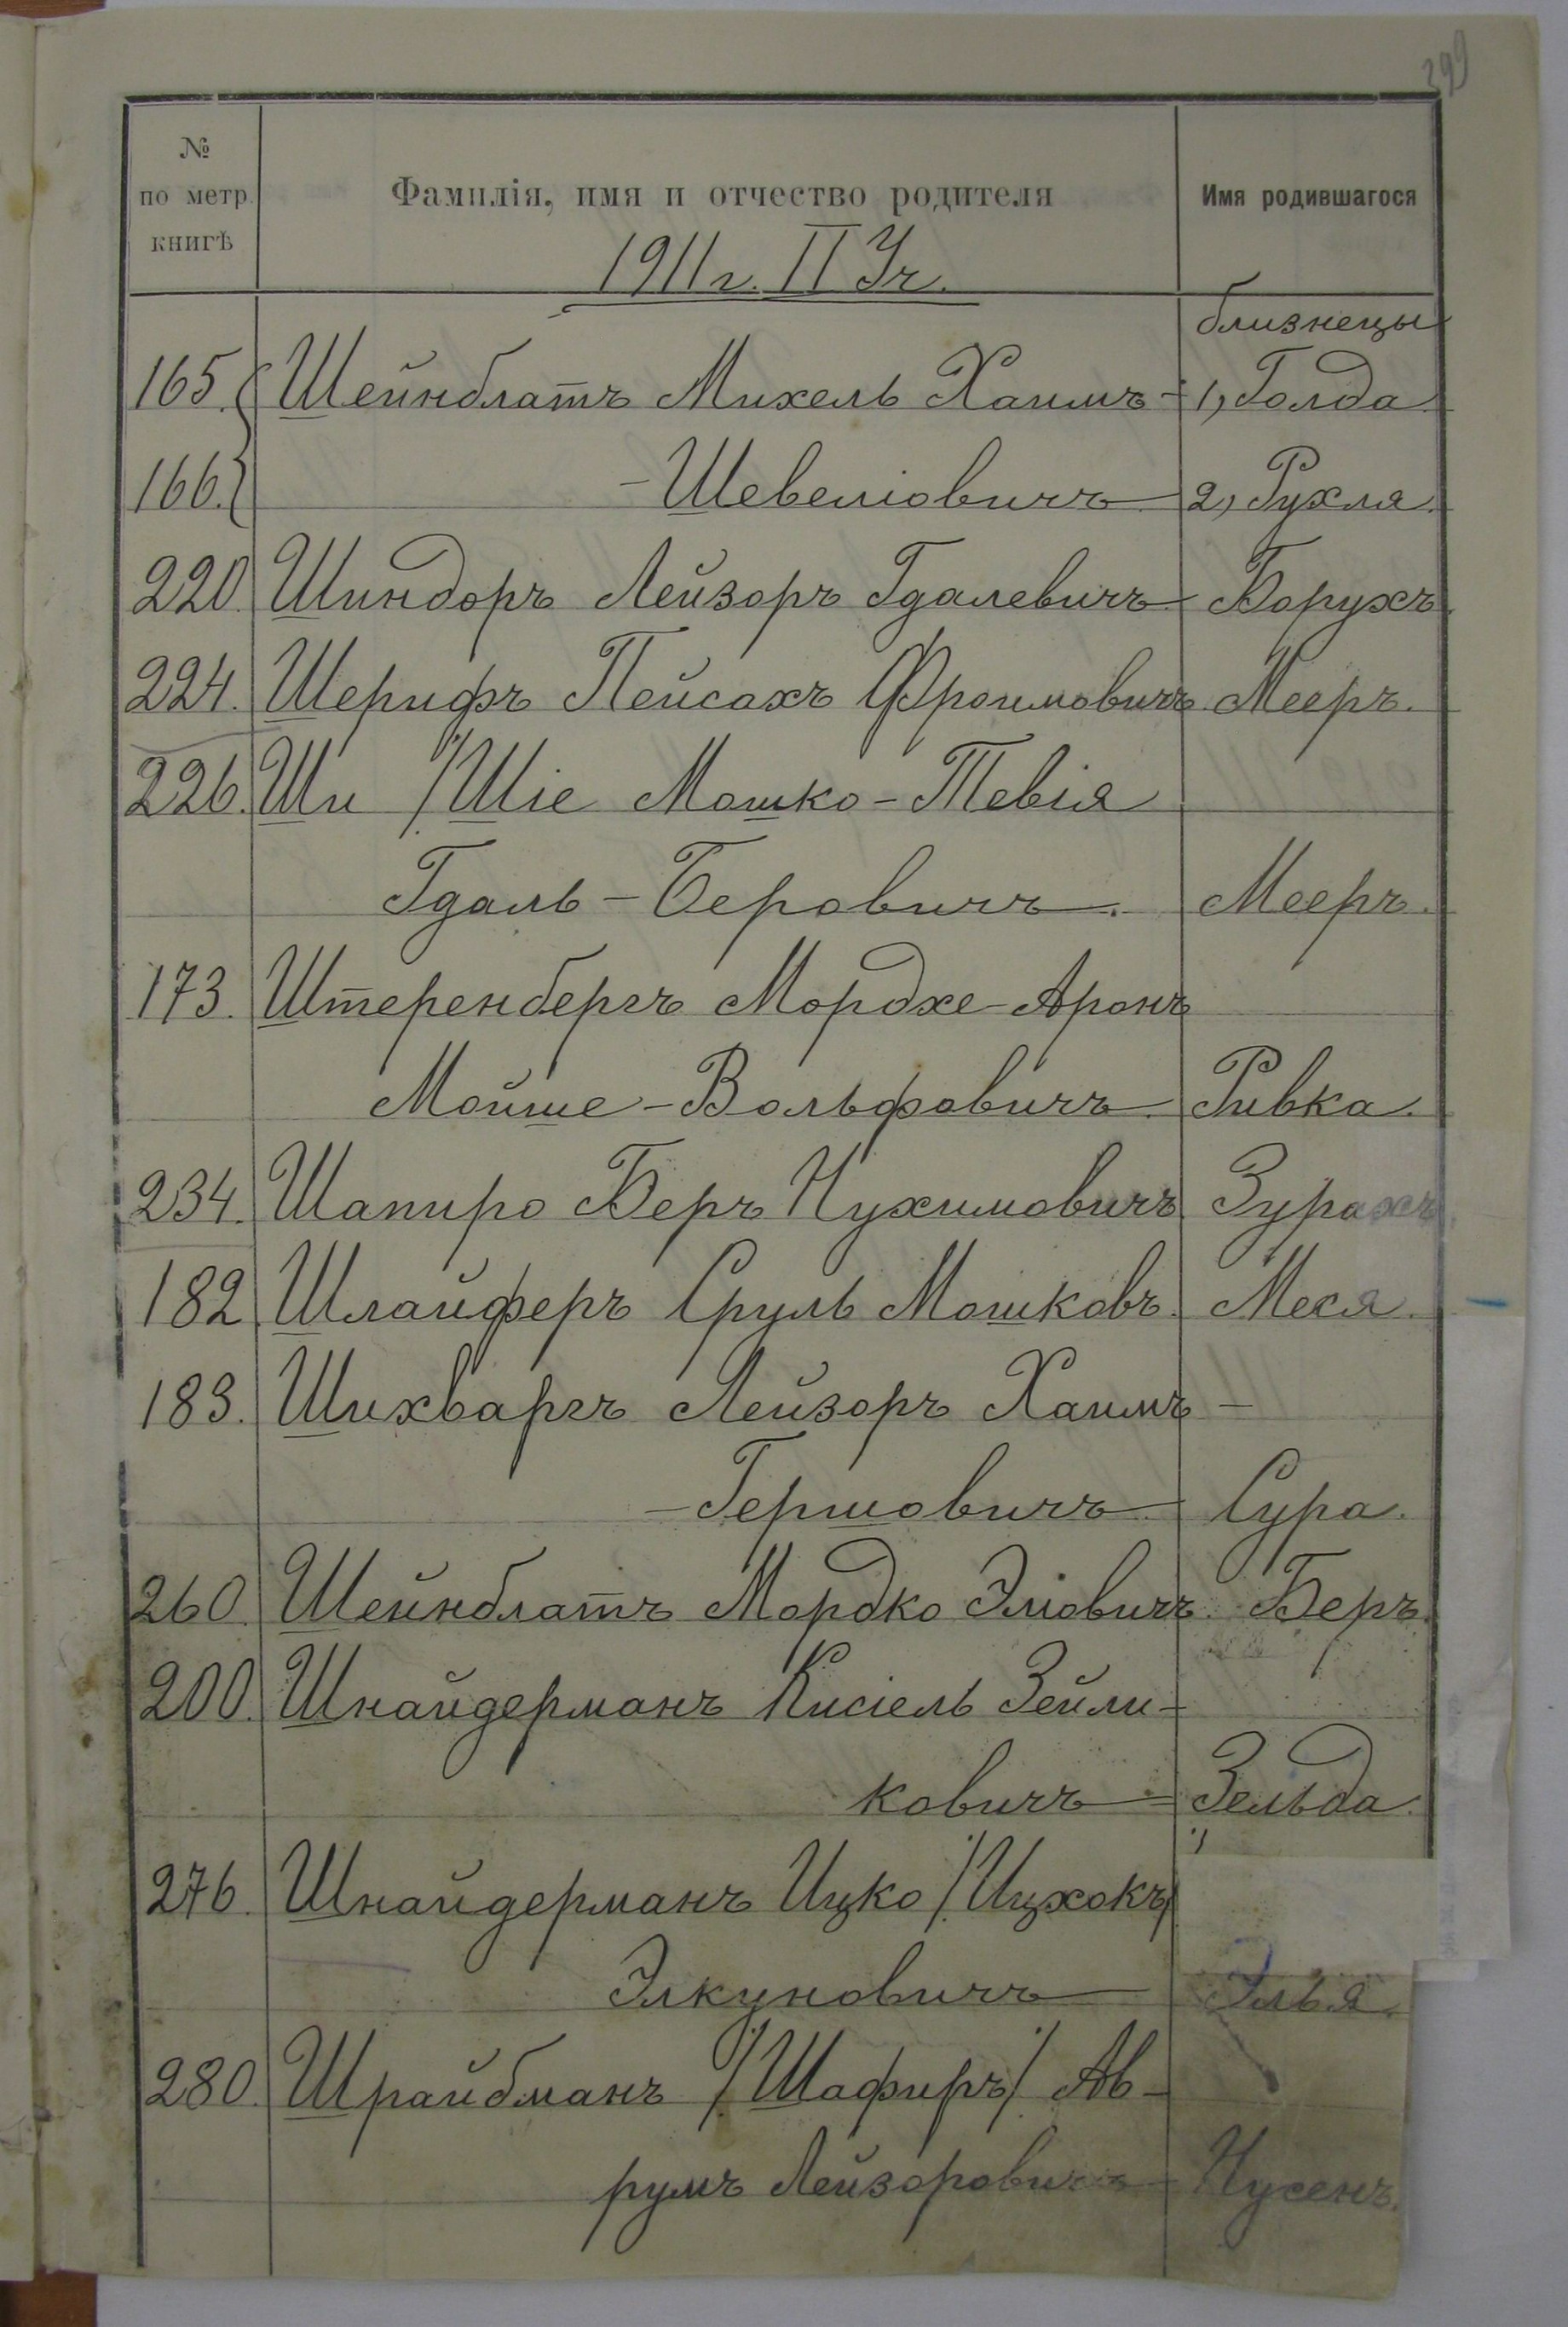 299
№
по метр.
книгѣ
Фамилія, имя и отчество родителя
Имя родившагося
1911 г. II Уч.
близнецы
165. Шейнблатъ Михель Хаимъ- 1, Голда
166. -Шевеліовичъ 2, Рухля.
220. Шиндоръ Лейзоръ Гдалевичъ Борухъ
224. Шерифъ Пейсахъ Фроимовичъ Мееръ.
226. Ши /Шіе Мошко-Тевія
Гдаль-Беровичъ. Мееръ.
173. Штеренбергъ Мордхе-Аронъ
Мойше-Вольфовичъ. Ривка.
234. Шапиро Беръ Нухимовичъ Зурахъ
182 Шлайферъ Сруль Мошковъ. Меся.
183. Шихваргъ Лейзоръ Хаимъ-
-Гершовичъ Сура.
260. Шейнблатъ Мордко Эліовичъ. Беръ.
200. Шнайдерманъ Кисіель Зейли-
ковичъ Зельда.
276. Шнайдерманъ Ицко /Ицхокъ/
Элкуновичъ Элья.
280. Шрайбманъ /Шафиръ/ Ав-
румъ Лейзоровичъ Нусенъ.